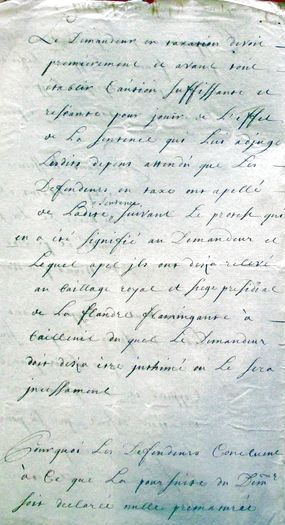 Le Demandeur en taxation devoit
premierement et avant tout
etablir Caution suffissante et
resseante pour jouir de L'effet
de La sentence qui Luÿ adjuge
Lesdits depens attendu que Les
Defendeurs en taxe ont apellé
de Ladite sentence, suivant Le protest qui
en a été signifié au Demandeur et
Lequel apel jls ont deja relevé
au Bailliage royal et siege presidial
de La flandre flamingante à
Bailleul du quel Le Demandeur
doit deja être jnthimé ou Le sera
jncessament
Pourquoi Les Defendeurs Concluent
à Ce que La poursuite du Demeur
soit declarée nulle prematurée